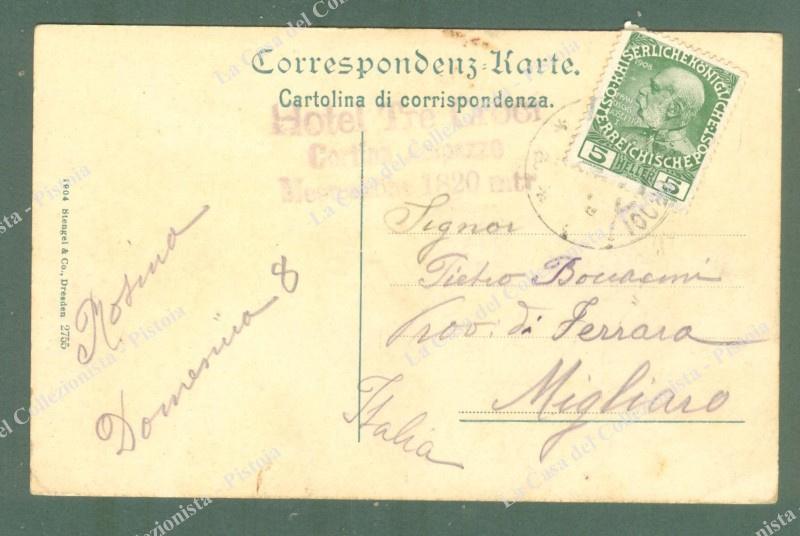 Correspondenz-Karte.
Cartolina di corrispondenza.
Hotel Tre Croci
Cortina
Meereshöhe 1820 mtr
1904 Stengel & Co., Dresden 2755
Rosina
Domenica 8
Signor
Pietro
Prov. di Ferrara
Migliaro
Italia
1908
5 HELLER 5
La Casa del Collezionista - Pistoia